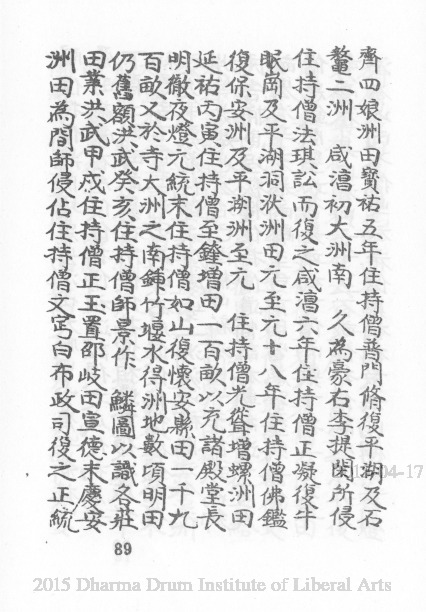 齊四娘洲田寳祐五年住持僧普門脩復平湖及石
鳌二洲 咸淳初大洲南 久為豪右李提閑所侵
住持僧法琪訟而復之咸淳六年住持僧正凝復牛
眠崗及平湖洞洑洲田元至元十八年住持僧佛鑑
復保安洲及平湖洲至元 住持僧光聳增螺洲田
延祐丙寅住持僧至鋒增田一百畝以充諸殿堂長
明徹夜燈元統末住持僧如山復懷安縣田一千九
百畝又於寺大洲之南鍾竹堰水得洲地數頃明田
仍舊額洪武癸亥住持僧師景作 鱗圖以識各莊
田業洪武甲戍住持僧正玉置邵岐田宣德末慶安
洲田為閻師侵佔住持僧文穹白布政司復之正統
89
2015 Dharma Drum Institute of Liberal Arts